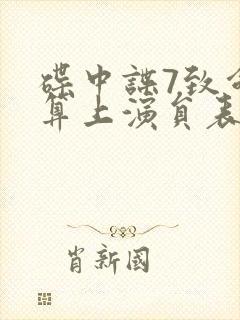 碟中諜7致命
算上演員表
肖新國